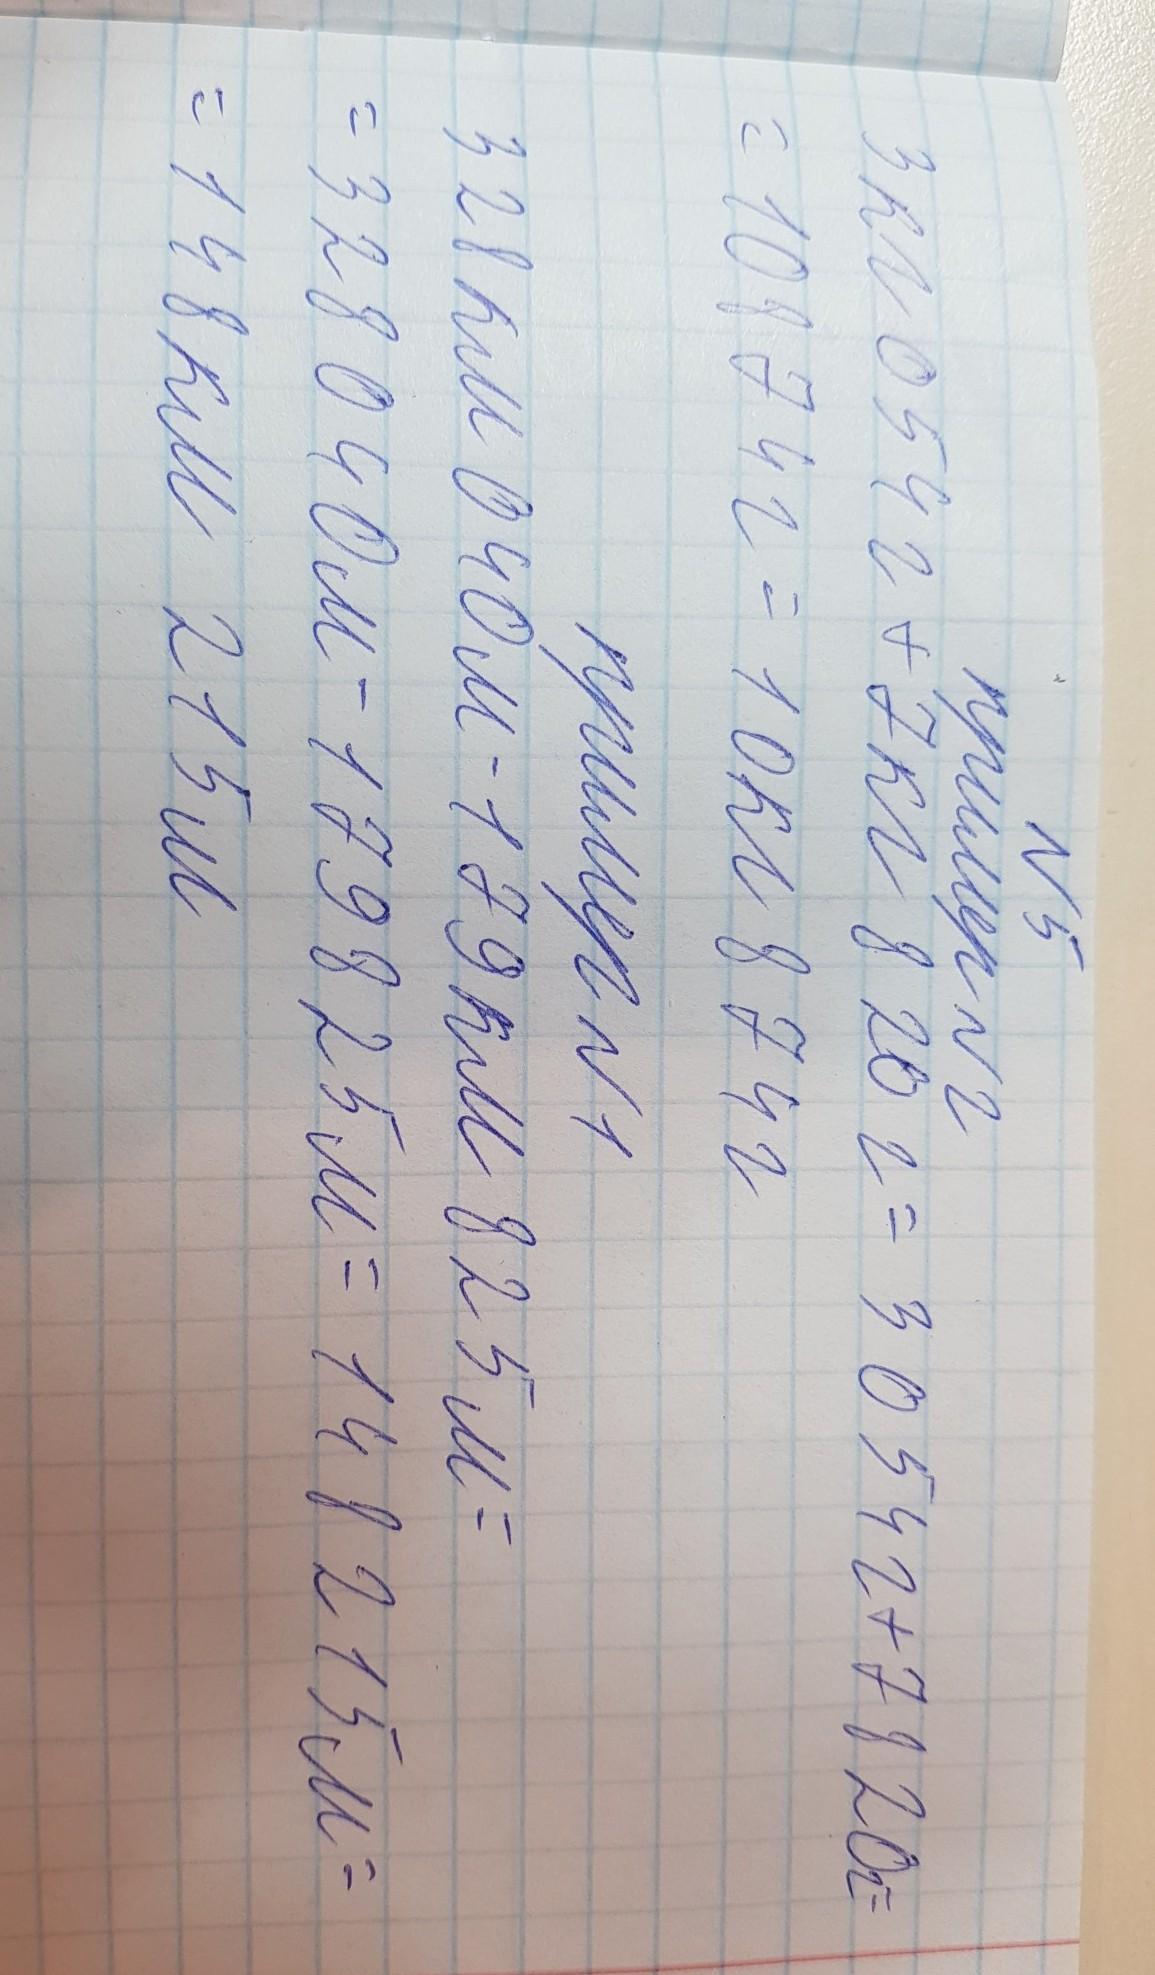 N 5
пример N 2
3кг 054г + 7кг 820г = 3054г + 7820г =
= 10874г = 10кг 874г
пример N 1
328км 040м - 179км 825м =
= 328040м - 179825м = 148215м =
= 148км 215м